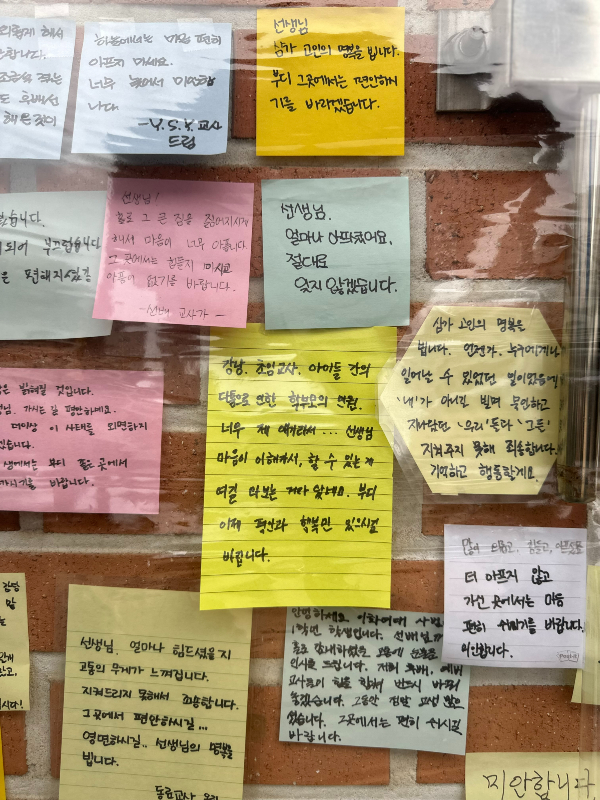 해서
합니다.
하늘에서는 마음 편히
아프지 마세요.
너무 늦어서 미안합
니다
-Y.S.Y 교사
드림
선생님
삼가 고인의 명복을 빕니다.
부디 그곳에서는 편안하시
기를 바라겠습니다.
습니다.
되어 부끄럽습니다
은 편해지셨길
선생님!
홀로 그 큰 짐을 짊어지시게
해서 마음이 너무 아픕니다.
그 곳에서는 힘들지 마시고
아픔이 없기를 바랍니다.
-선배 교사가-
선생님.
얼마나 아프셨어요.
절대로
잊지 않겠습니다.
삼가 고인의 명복을
빕니다. 언젠가, 누구에게나
일어날 수 있었던 일이었음에
'내'가 아니길 빌며 묵인하고
지나갔던 '우리'들이 '그들'
지켜주지 못해 죄송합니다.
기억하고 행동할게요.
강남. 초임교사. 아이들 간의
다툼으로 인한 학부모의 민원.
너무 제 얘기라서... 선생님
마음이 이해가서, 할 수 있는 게
여길 와보는 거라 왔네요. 부디
이제 평안과 행복만 있으시길
바랍니다.
은 밝혀질 것입니다.
님. 가시는 길 평안하세요.
더이상 이 사태를 외면하지
겠습니다.
생에서는 부디 좋은 곳에서
시기를 바랍니다.
많이 슬프고, 힘들고, 아프셨을
더 아프지 않고
가신 곳에서는 마음
편히 쉬시기를 바랍니다.
미안합니다.
선생님, 얼마나 힘드셨을지
고통의 무게가 느껴집니다.
지켜드리지 못해서 죄송합니다.
그곳에서 편안하시길...
영면하시길.. 선생님의 명복을
빕니다.
동료교사 올림
안녕하세요 이화여대
1학년 학생입니다. 선배님께
인사를 드립니다. 저희 후배, 예비
교사들이 힘을 합쳐 반드시 바꿔
놓겠습니다. 그동안 정말 고생 많으
셨습니다. 그곳에서는 편히 쉬시길
바랍니다.
미안합니다